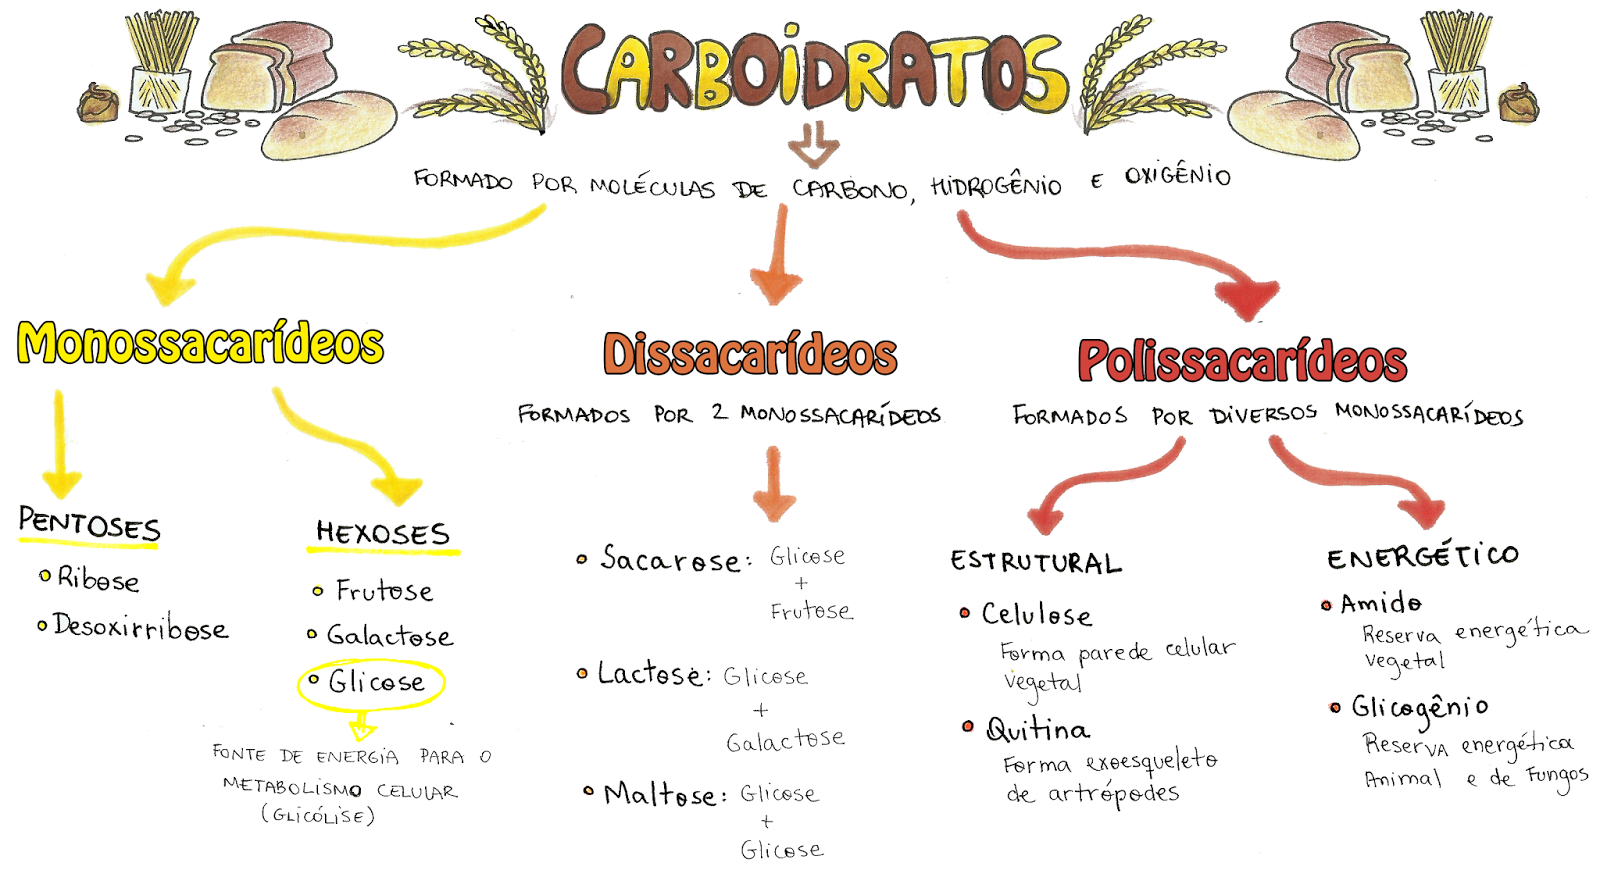 CARBOIDRATOS
FORMADO POR MOLÉCULAS DE CARBONO, HIDROGÊNIO E OXIGÊNIO
Monossacarídeos
PENTOSES
Ribose
Desoxirribose
HEXOSES
Frutose
Galactose
Glicose
FONTE DE ENERGIA PARA O
METABOLISMO CELULAR
(GLICÓLISE)
Dissacarídeos
FORMADOS POR 2 MONOSSACARÍDEOS
Sacarose: Glicose
+
Frutose
Lactose: Glicose
+
Galactose
Maltose: Glicose
+
Glicose
Polissacarídeos
FORMADOS POR DIVERSOS MONOSSACARÍDEOS
ESTRUTURAL
Celulose
Forma parede celular
vegetal
Quitina
Forma exoesqueleto
de artrópodes
ENERGÉTICO
Amido
Reserva energética
vegetal
Glicogênio
Reserva energética
Animal e de Fungos